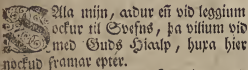 SAla mijn, adur eñ vid leggium
ockur til Svefns, þa vilium vid
med Guds Hiaalp, huxa hier
nockud framar epter.